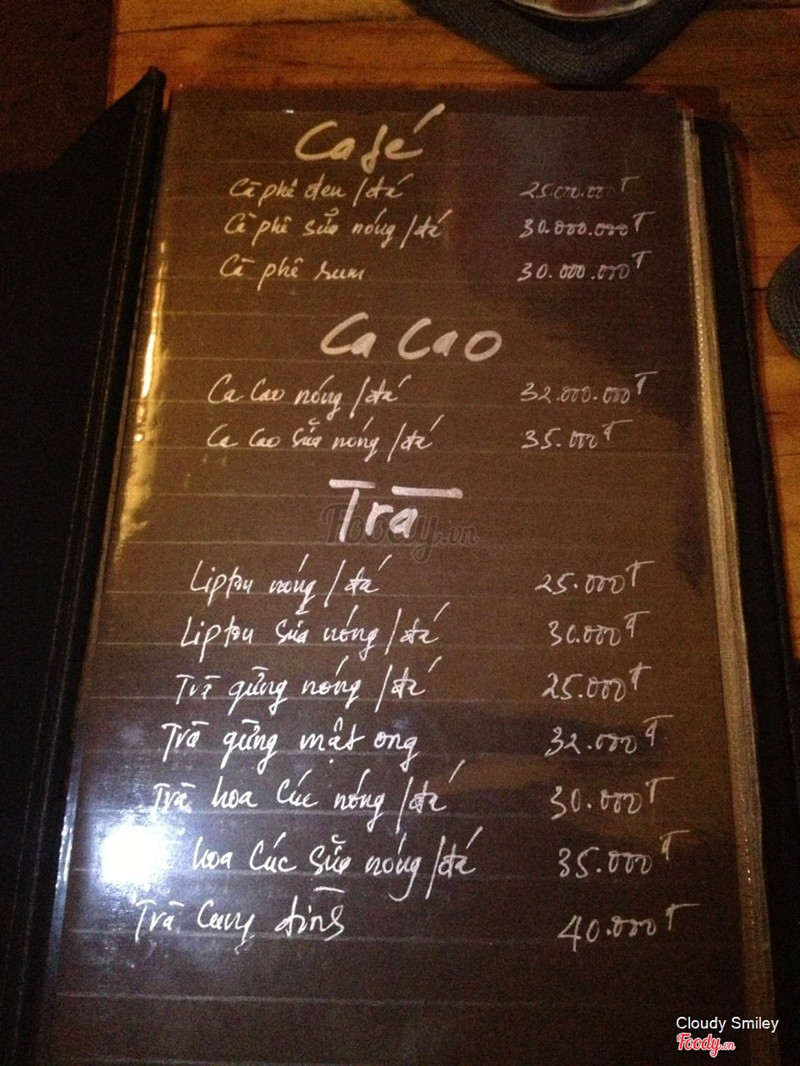 Café
Cà phê đen / đá 25.000.000đ
Cà phê sữa nóng / đá 30.000.000đ
Cà phê rum 30.000.000đ
Ca Cao
Ca Cao nóng / đá 32.000.000đ
Ca Cao sữa nóng / đá 35.000đ
Trà
Foody.vn
Lipton nóng / đá 25.000đ
Lipton sữa nóng / đá 30.000đ
Trà gừng nóng / đá 25.000đ
Trà gừng mật ong 32.000đ
Trà hoa Cúc nóng / đá 30.000đ
hoa Cúc sữa nóng / đá 35.000đ
Trà Cung đình 40.000đ
Cloudy Smiley
Foody.vn